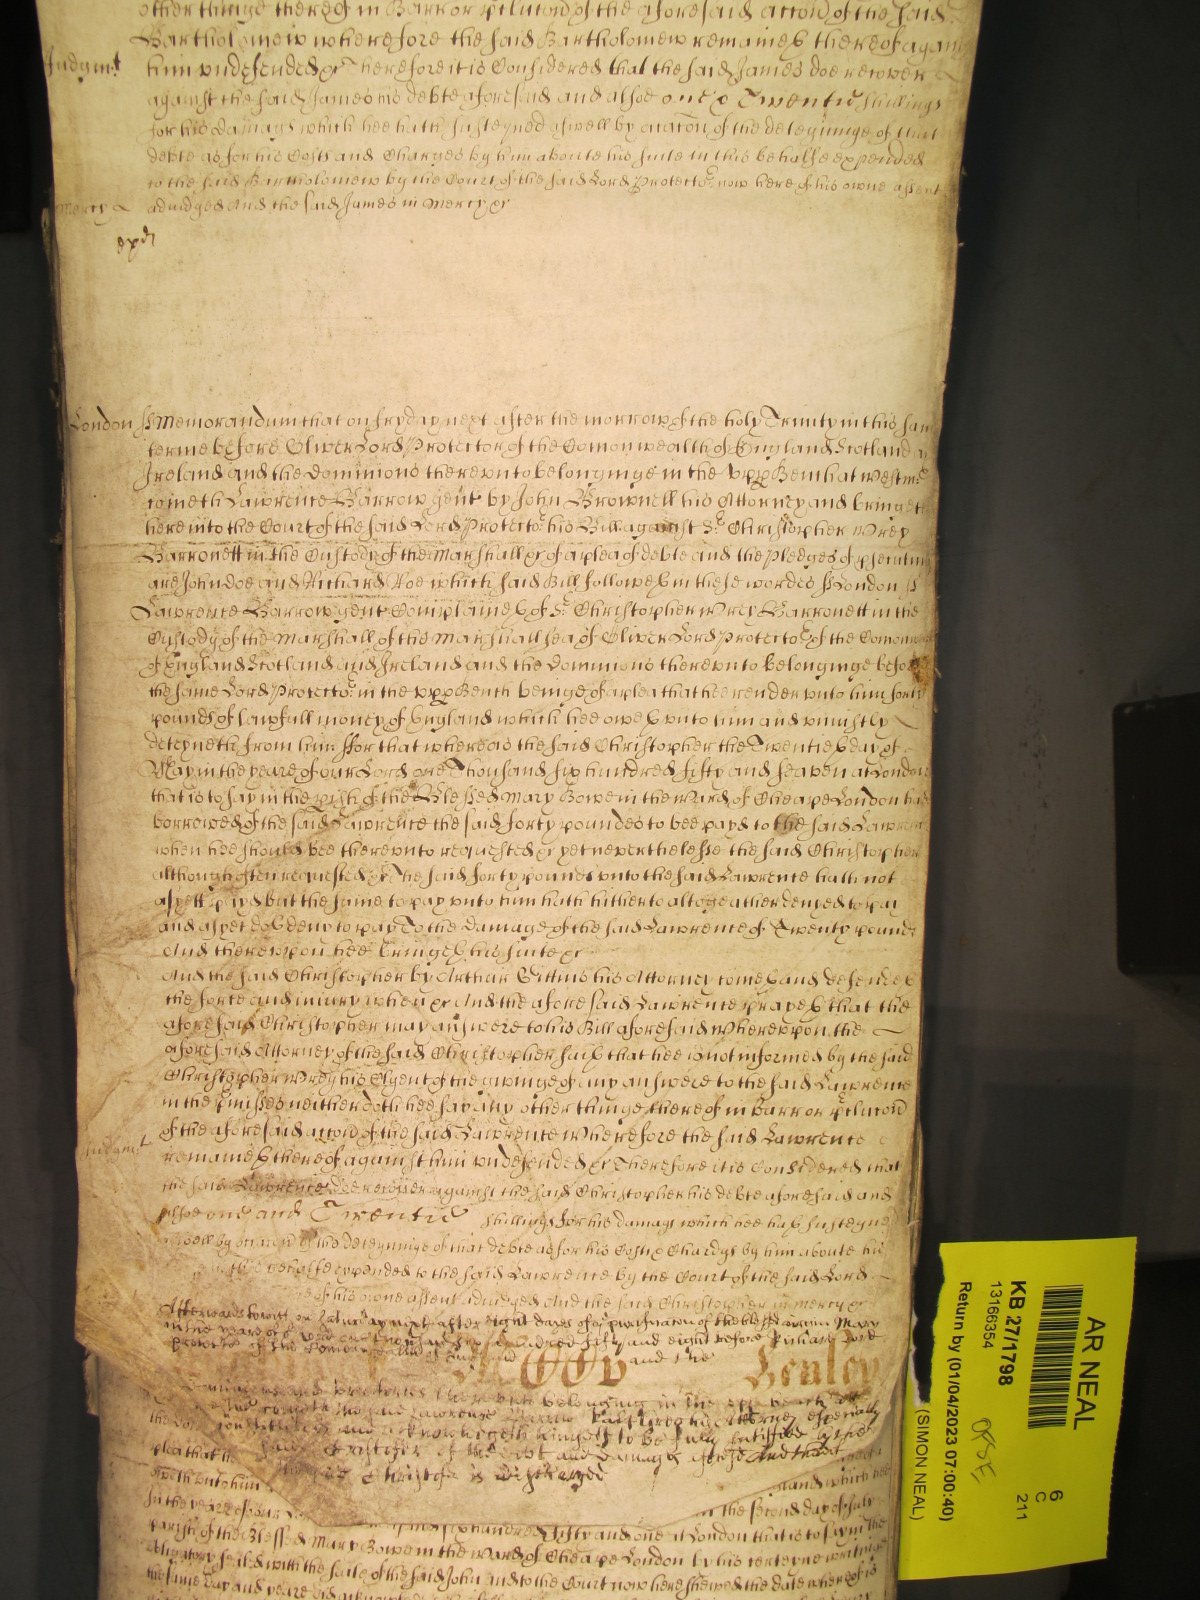 other thinge thereof in Barr or p'clusion of the aforesaid accon of the said
Bartholomew wherefore the said Bartholomew remaines thereof against
Judgmt
him undefended &c Therefore it is Considered that the said James doe recover
against the said James his debte aforesaid and alsoe one & Twentie shillings
for his damags which hee hath susteyned aswell by occacon of the deteyninge of that
debte as for his Costs and Charges by him aboute his suite in this behalfe expended
to the said Bartholomew by the Court of the said Lord Protector now here of his owne assent
Mercy
adiudged And the said James in Mercy &c
exd
London ss Memorandum that on fryday next after the morrow of the holy Trinity in this same
terme before Oliver Lord Protector of the Comonwealth of England Scotland
Ireland and the dominions thereunto belonginge in the upp Bench at Westmr
cometh Lawrence Barrow gent by John Brownell his Attorney and bringeth
here into the Court of the said Lord Protector his Bill against Sr Christopher Wrey
Barronett in the Custody of the Marshall &c of a plea of debte and the Pledges of p'secution
are John doe and Richard Roe which said Bill followeth in these wordes ss London ss
Lawrence Barrow gent Complaineth of Sr Christopher Wrey Barronett in the
Custody of the Marshall of the Marshallsea of Oliver Lord Protector of the Comonw
of England Scotland and Ireland and the dominions thereunto belonginge before
the same Lord Protector in the upp Bench beinge of a plea that hee render unto him forty
pounds of lawfull money of England which hee oweth unto him and uniustly
deteyneth from him ffor that whereas the said Christopher the Twentieth day of
May in the yeare of our Lord one Thousand six hundred fifty and seaven at London
that is to say in the pish of the Blessed Mary Bowe in the Ward of Cheape London had
borrowed of the said Lawrence the said forty poundes to bee payd to the said Lawrence
when hee should bee thereunto requested &c yet neverthelesse the said Christopher
although often requested &c The said forty pounds unto the said Lawrence hath not
as yett payd but the same to pay unto him hath hitherto altogeather denyed to pay
and as yet doth deny to pay To the damage of the said Lawrence of Twenty pounds
And thereupon hee bringeth his suite &c
And the said Christopher by Arthur Gittins his Attorney cometh and defendeth
the force and iniury when &c And the aforesaid Lawrence prayeth that the
aforesaid Christopher may answere to his Bill aforesaid Whereupon the
aforesaid Attorney of the said Christopher saith that hee is not informed by the said
Christopher Wrey his Clyent of the givinge of any answere to the said Lawrence
in the p'misses neither doth hee say any other thinge thereof in Barr or p'clusion
of the aforesaid accon of the said Lawrence Wherefore the said Lawrence
Judgmt
remaineth thereof against him undefended &c Therefore it is Considered that
the said Lawrence doe recover against the said Christopher his debte aforesaid and
alsoe one and Twentie shillings for his damags which hee hath susteyned
aswell by occacon of the deteyninge of that debte as for his Costs & Chardgs by him aboute his
in this behalfe expended to the said Lawrence by the Court of the said Lord
of his owne assent adiudged And the said Christopher in mercy &c
Afterwards to wit on Saturday next after eight dayes of the purificacon of the blessed virgin Mary
in the yeare of our Lord one thousand six hundred fifty and eight before Richard Lord
protector of the Comonwealth of England and the
Henley
dominions and territories thereunto belonging in the upp bench att
cometh the said Lawrence Barrow by his Attorney especially
constituted and acknowledgeth himselfe to be fully satisfied by the
said Christopher of the debt and damags aforesd And therefore
the said Christopher is discharged
plea that h
oweth unto him and which hee
In the yeare of our six hundred fifty and one the second day of July at London that is to say in the
parish of the Blessed Mary Bowe in the Ward of Cheape London by his certeyne writinge
obligatory sealed with the seale of the said John and to the Court now here shewed the date whereof is
the same day and yeare did
AR NEAL
KB 27/1798
13166354
Return by (01/04/2023 07:00:40)
(SIMON NEAL)
6
C
211